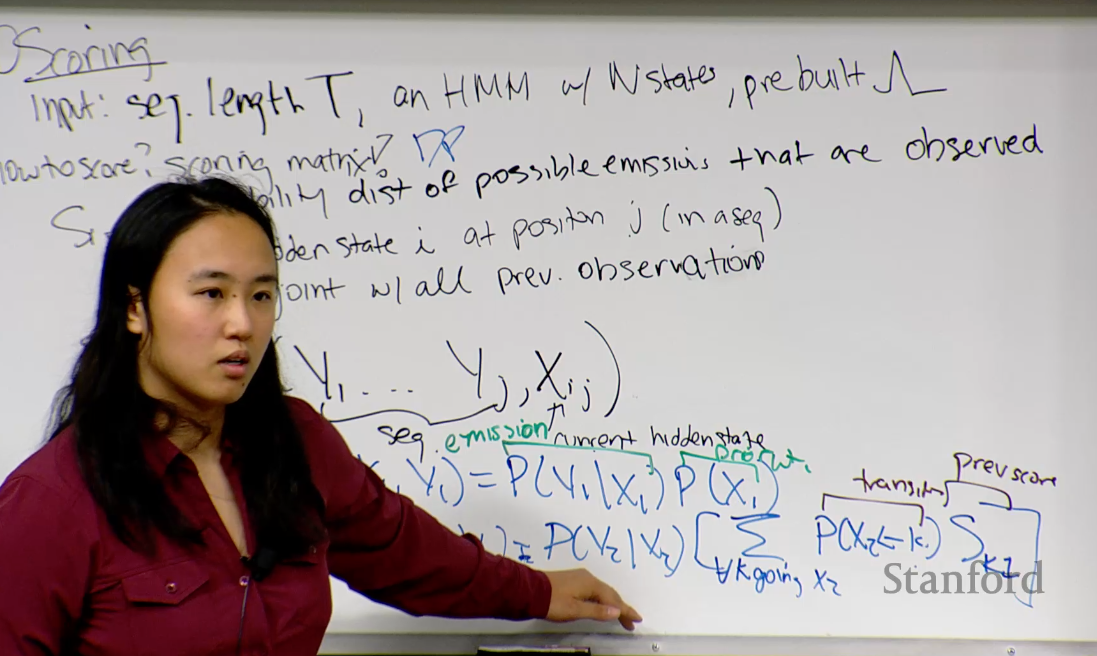 Scoring
Input: seq. length T, an HMM w/ N states, prebuilt Λ
How to score? scoring matrix! DP
bility dist of possible emissions that are observed
dden state i at position j (in a seq)
joint w/ all prev. observations
(Y1 .... Yj, Xij)
seq. emission current hidden state
transition prev score
, Y1) = P(Y1|X1) P(X1)
) = P(Y2|X2) [ Σ P(X2←k) Sk1 ]
∀k going X2
Stanford